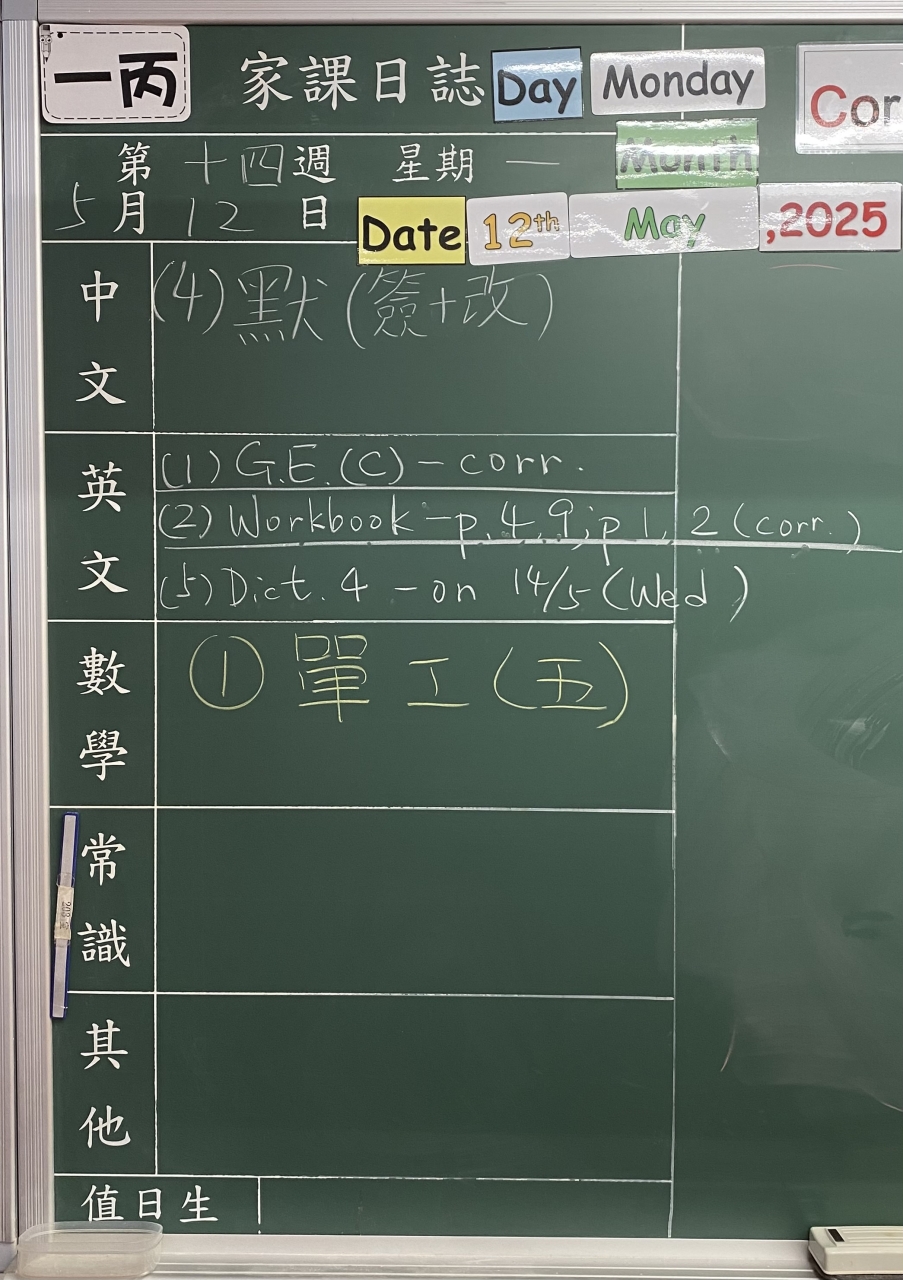 一丙 家課日誌 Day Monday Cor
第十四週 星期一 Month
5月12日 Date 12th May ,2025
中文 (4) 默(簽+改)
英文 (1) G.E.(C) - corr.
(2) Workbook - p.4, 9; p1, 2 (corr.)
(5) Dict. 4 - on 14/5 (Wed)
數學 ① 單工(五)
常識
其他
值日生